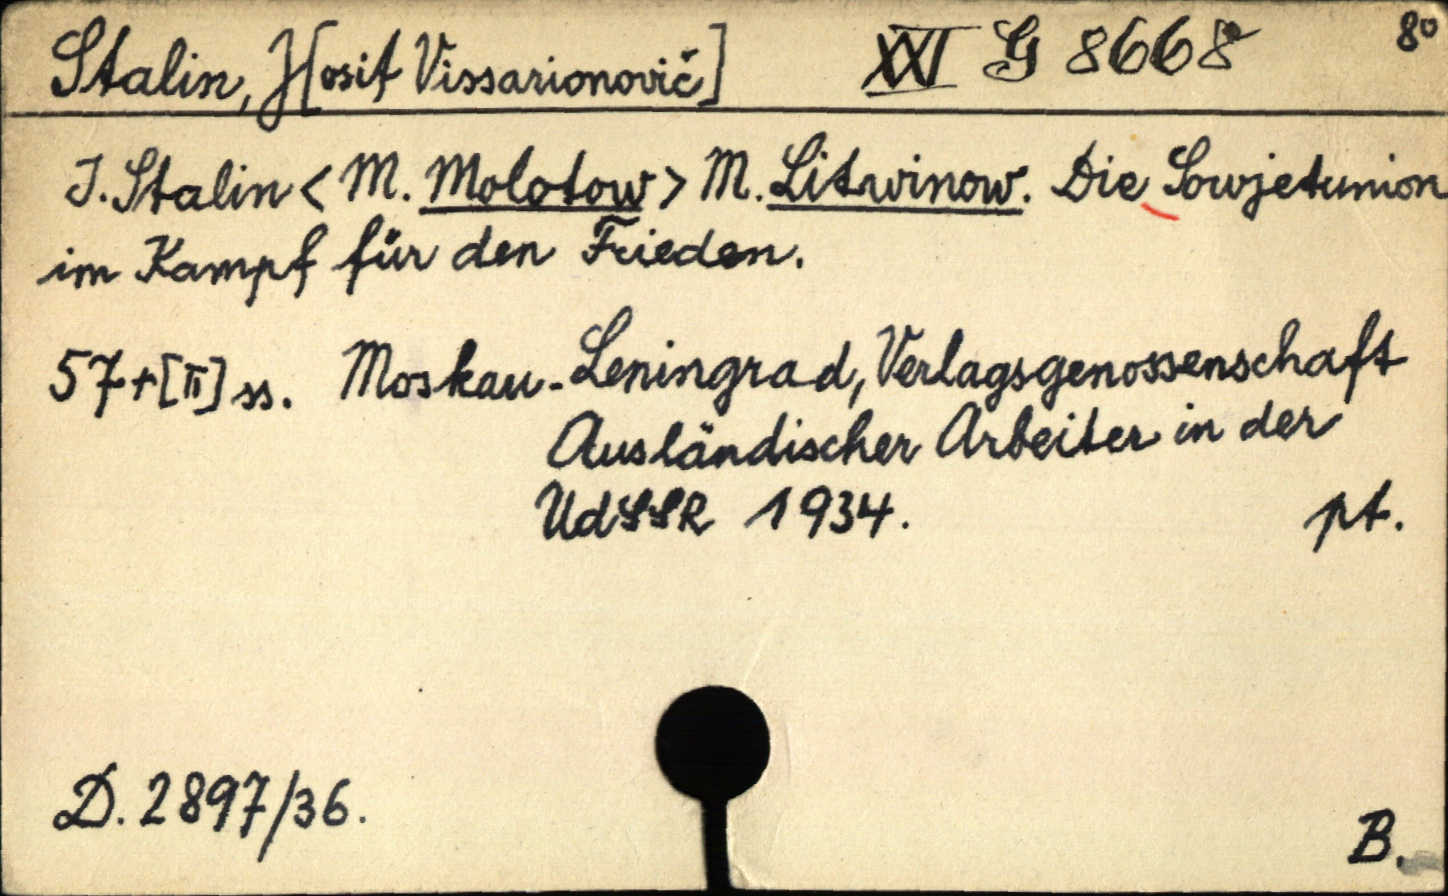 Stalin, J[osif Vissarionovič] XXI G 8668 8°
J. Stalin < M. Molotow > M. Litwinow. Die Sowjetunion
im Kampf für den Frieden.
57+[II] ss. Moskau-Leningrad, Verlagsgenossenschaft
Ausländischer Arbeiter in der
UdSSR 1934. pt.
D. 2897/36. B.